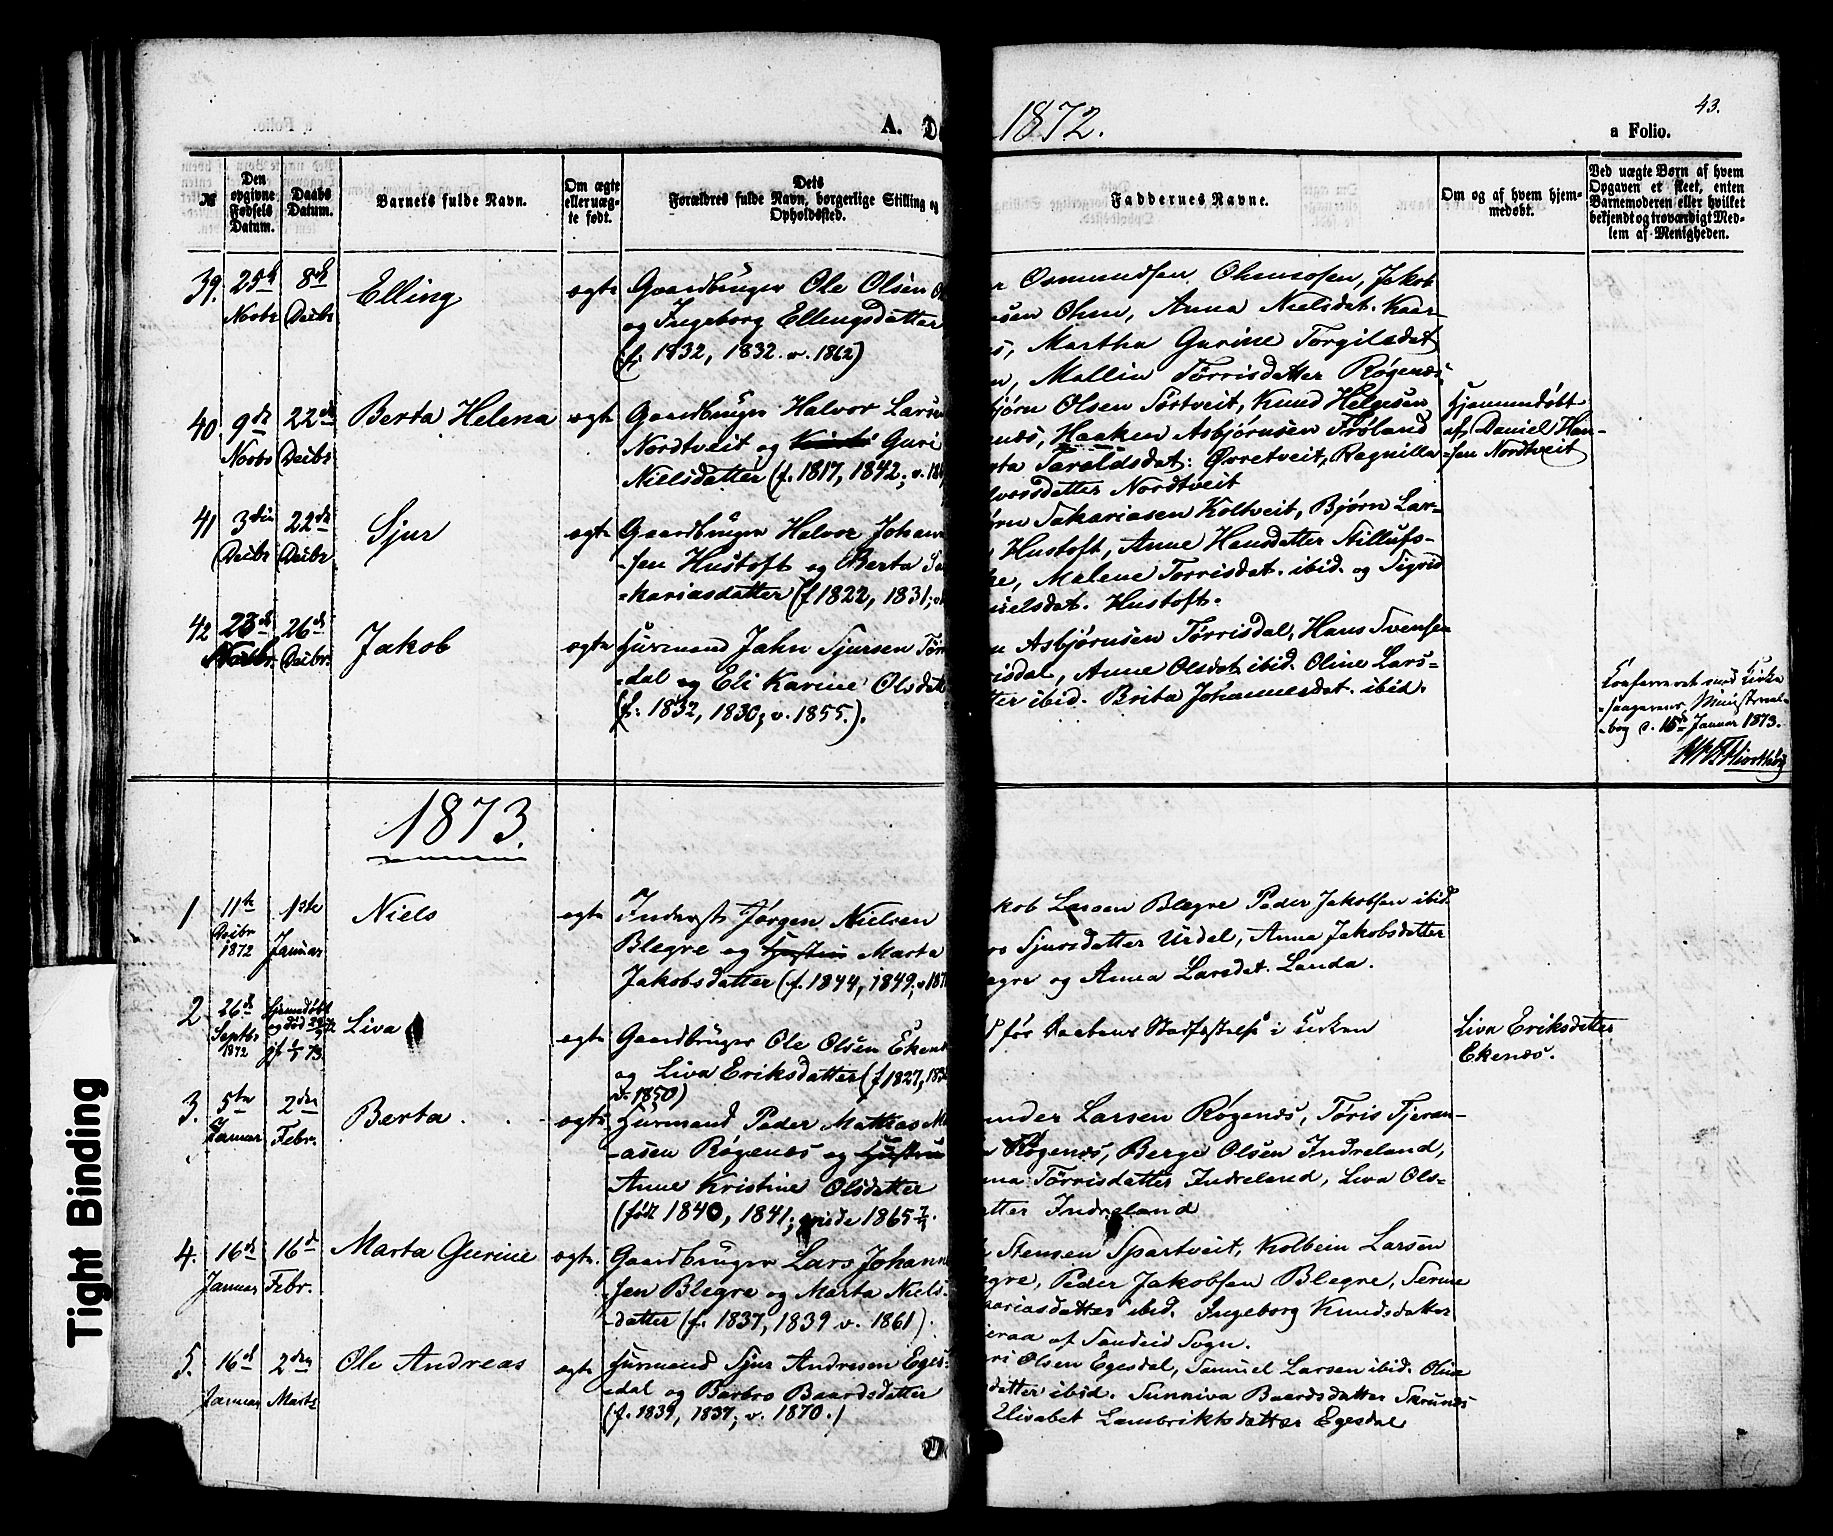 43.
A. D 1872. a Folio.
№ Den opgivne Fødsels Datum. Daabs Datum. Barnets fulde Navn. Om ægte eller uægte født. Dets Forældres fulde Navn, borgerlige Stilling og Opholdssted. Faddernes Navne. Om og af hvem hjemmedøbt. Ved uægte Børn af hvem Opgaven et skeet, enten Barnemoderen eller hvilket bekjendt og troværdigt Medlem af Menigheden.
39. 25de Novbr 8de Decbr Elling ægte Gaardbruger Ole Olsen
og Ingeborg Ellingsdatter
(f. 1832, 1832. v. 1862)
Osmundsen Ohmsosen, Jakob
sen Ohm, Anna Nielsdat. Kaar-
s, Martha Gurine Torgilsdat
n, Mallin Tørrisdatter Røgenæs
40 9de Novbr 22de Decbr Berta Helena ægte Gaardbruger Halvor Larsen
Nordtveit og Guri
Nielsdatter (f. 1817, 1842; v.
bjørn Olsen Sørtveit, Knud Helgesen
næs, Haaken Asbjørnsen Frøland
ta Taraldsdat: Øvretveit, Ragnilla
lvorsdatter Nordtveit
Hjemmedøbt
af Daniel Han-
-sen Nordtveit
41 3die Decbr 22de Decbr Sjur ægte Gaardbruger Halvor Johan
-sen Hustoft og Berta Sa
-kariasdatter (f 1822, 1831;
ørn Sakariasen Kolbveit, Bjørn Lar-
Hustoft, Anne Hansdatter Stillufs-
ke, Malene Torrisdat. ibid. og Sigrid
uelsdat. Hustoft.
42 23de Novbr. 26de Decbr. Jakob ægte Husmand Jahn Sjursen Tørr
-dal og Eli Karine Olsdat
(f. 1832, 1830; v. 1855.).
n Asbjørnsen Tørrisdal, Hans Svensen
isdal, Anne Olsdat ibid. Oline Lars-
tter ibid. Brita Johannesdat. ibid.
Konfereret med Kirke
-sangerens Ministerial-
-bog d. 15de Januar 1873.
1873.
1 11te Decbr 1872 1ste Januar Niels ægte Inderst Jørgen Nielsen
Blegre og Hustru Marta
Jakobsdatter (f. 1844, 1849; v 187
akob Larsen Blegre Peder Jakobsen ibid.
Sjursdatter Urdal, Anna Jakobsdatter
egre og Anna Larsdat. Landa.
2 26de Septbr 1872 Hjemmedøbt og død Liva ægte Gaardbruger Ole Olsen Ekenæ
og Liva Eriksdatter (f 1827, 183
v. 1850)
før Daabens Stadfæstelse i Kirken
Liva Eriksdatter
Ekenæs.
3. 5te Januar 2den Febr. Berta. ægte Husmand Peder Mathias M
-asen Røgenæs og Hustru
Anne Kristine Olsdatter
(født 1840, 1841; viede 1865
under Larsen Røgenæs, Tøris Tjeran-
Røgenæs, Berge Olsen Indreland,
na Tørrisdatter Indreland, Liva Ols-
atter Indreland
4. 16de Januar 16de Febr. Marta Gurine ægte. Gaardbruger Lars Johann
-sen Blegre og Marta Niels-
-datter (f. 1837, 1839 v. 1861).
Stensen Spartveit, Kolbein Larsen
gre, Peder Jakobsen Blegre, Serine
ariasdatter ibid. Ingeborg Knudsdatter
eraa af Sandeid Sogn.
5. 16de Januar 2den Marts Ole Andreas ægte Husmand Sjur Andresen Eges-
-dal og Barbro Baardsdatter
(f. 1839, 1837; v. 1870.)
ri Olsen Egesdal, Samuel Larsen ibid. Olina
datter ibid. Sunniva Baardsdatter Skrunes
Elisabet Lambriktsdatter Egesdal
Tight Binding